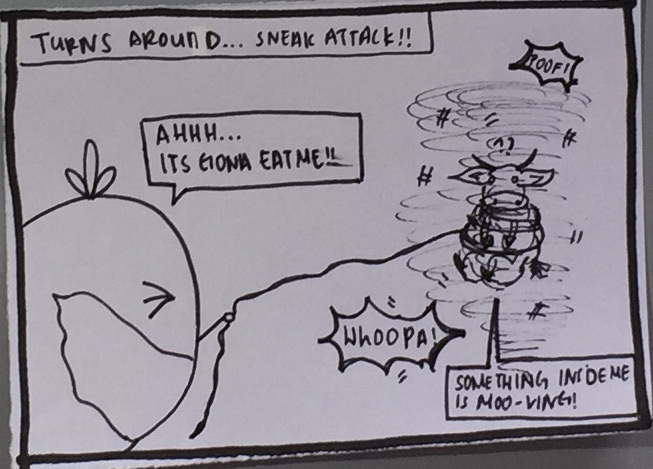 TURNS AROUND... SNEAK ATTACK!!
POOF!
AHHH...
ITS GONA EAT ME!!
WHOOPA!
SOMETHING INSIDE ME
IS MOO-VING!